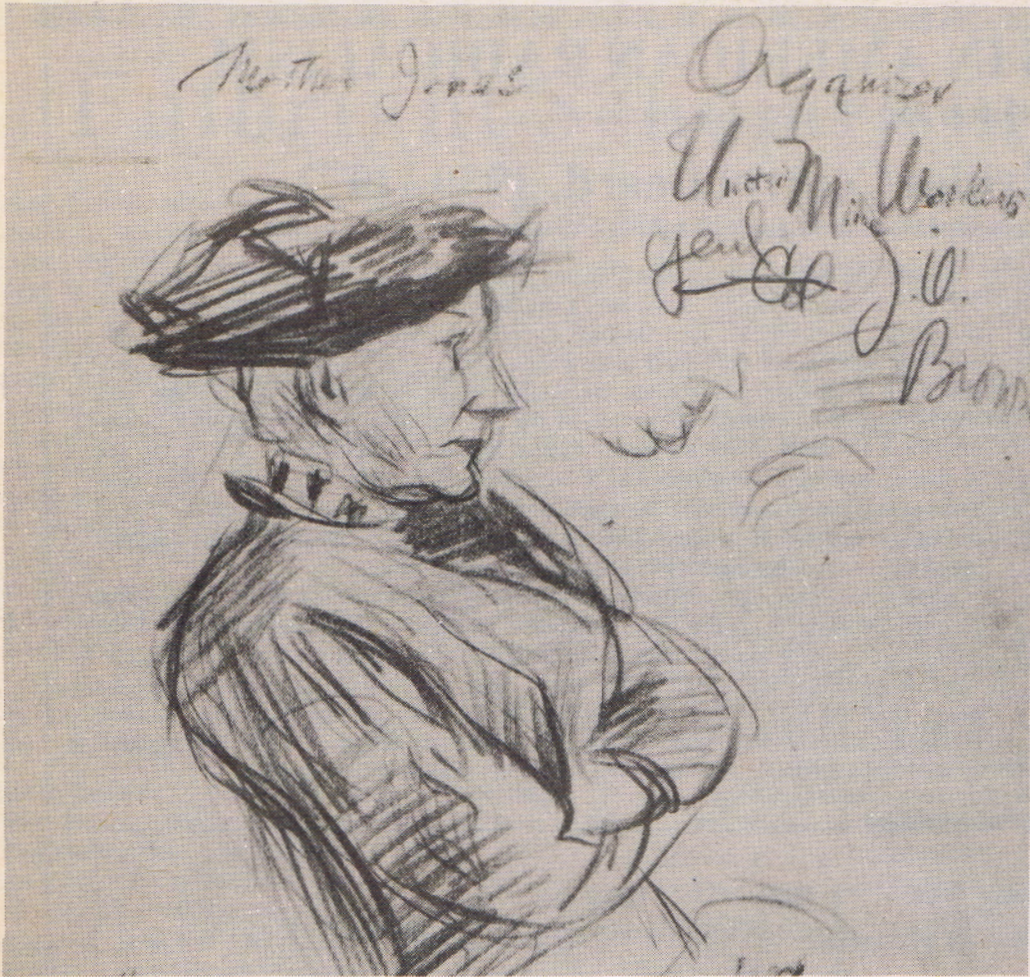 Mother Jones
Organizer
United Mine Workers
J.W.
Brown